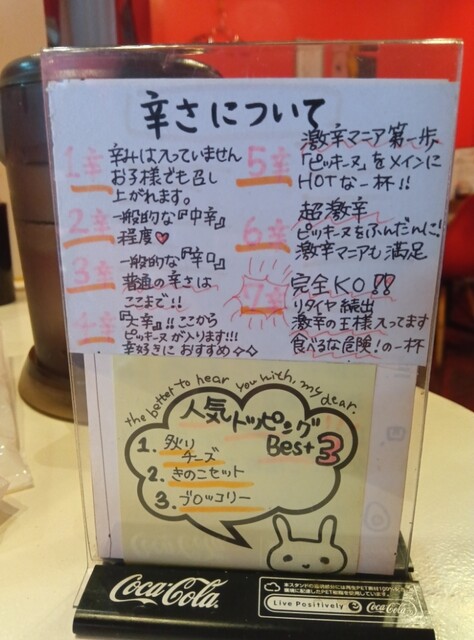 辛さについて
1辛
辛みは入っていません
お子様でも召し
上がれます。
2辛
一般的な『中辛』
程度♥
3辛
一般的な『辛口』
普通の辛さは
ここまで!!
4辛
『大辛』!!ここから
ピッキーヌが入ります!!!
辛好きにおすすめ✧✧
5辛
激辛マニア第一歩
「ピッキーヌ」をメインに
HOTな一杯!!
6辛
超激辛
ピッキーヌをふんだんに!
激辛マニアも満足
7辛
完全KO!!
リタイヤ続出
激辛の王様入ってます
食べるな危険!の一杯
the better to hear you with, my dear.
人気トッピング
Best 3
1. 炙り
チーズ
2. きのこセット
3. ブロッコリー
Coca-Cola
Live Positively
Coca-Cola